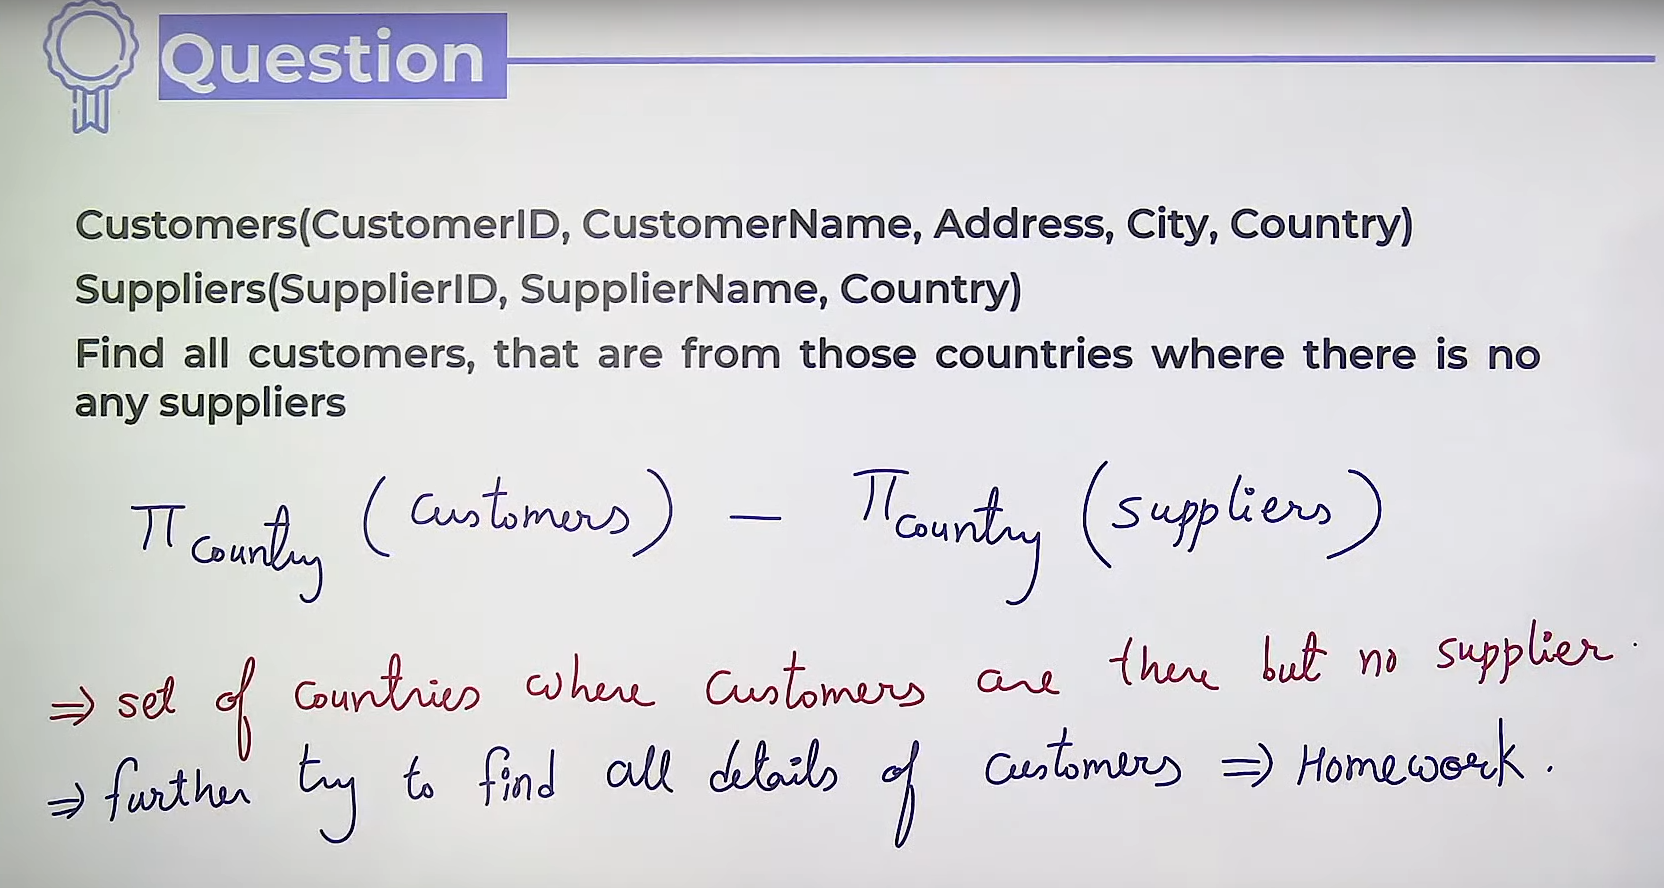 Question
Customers(CustomerID, CustomerName, Address, City, Country)
Suppliers(SupplierID, SupplierName, Country)
Find all customers, that are from those countries where there is no
any suppliers
π country (customers) − π country (suppliers)
⇒ set of countries where customers are there but no supplier.
⇒ further try to find all details of customers ⇒ Homework.